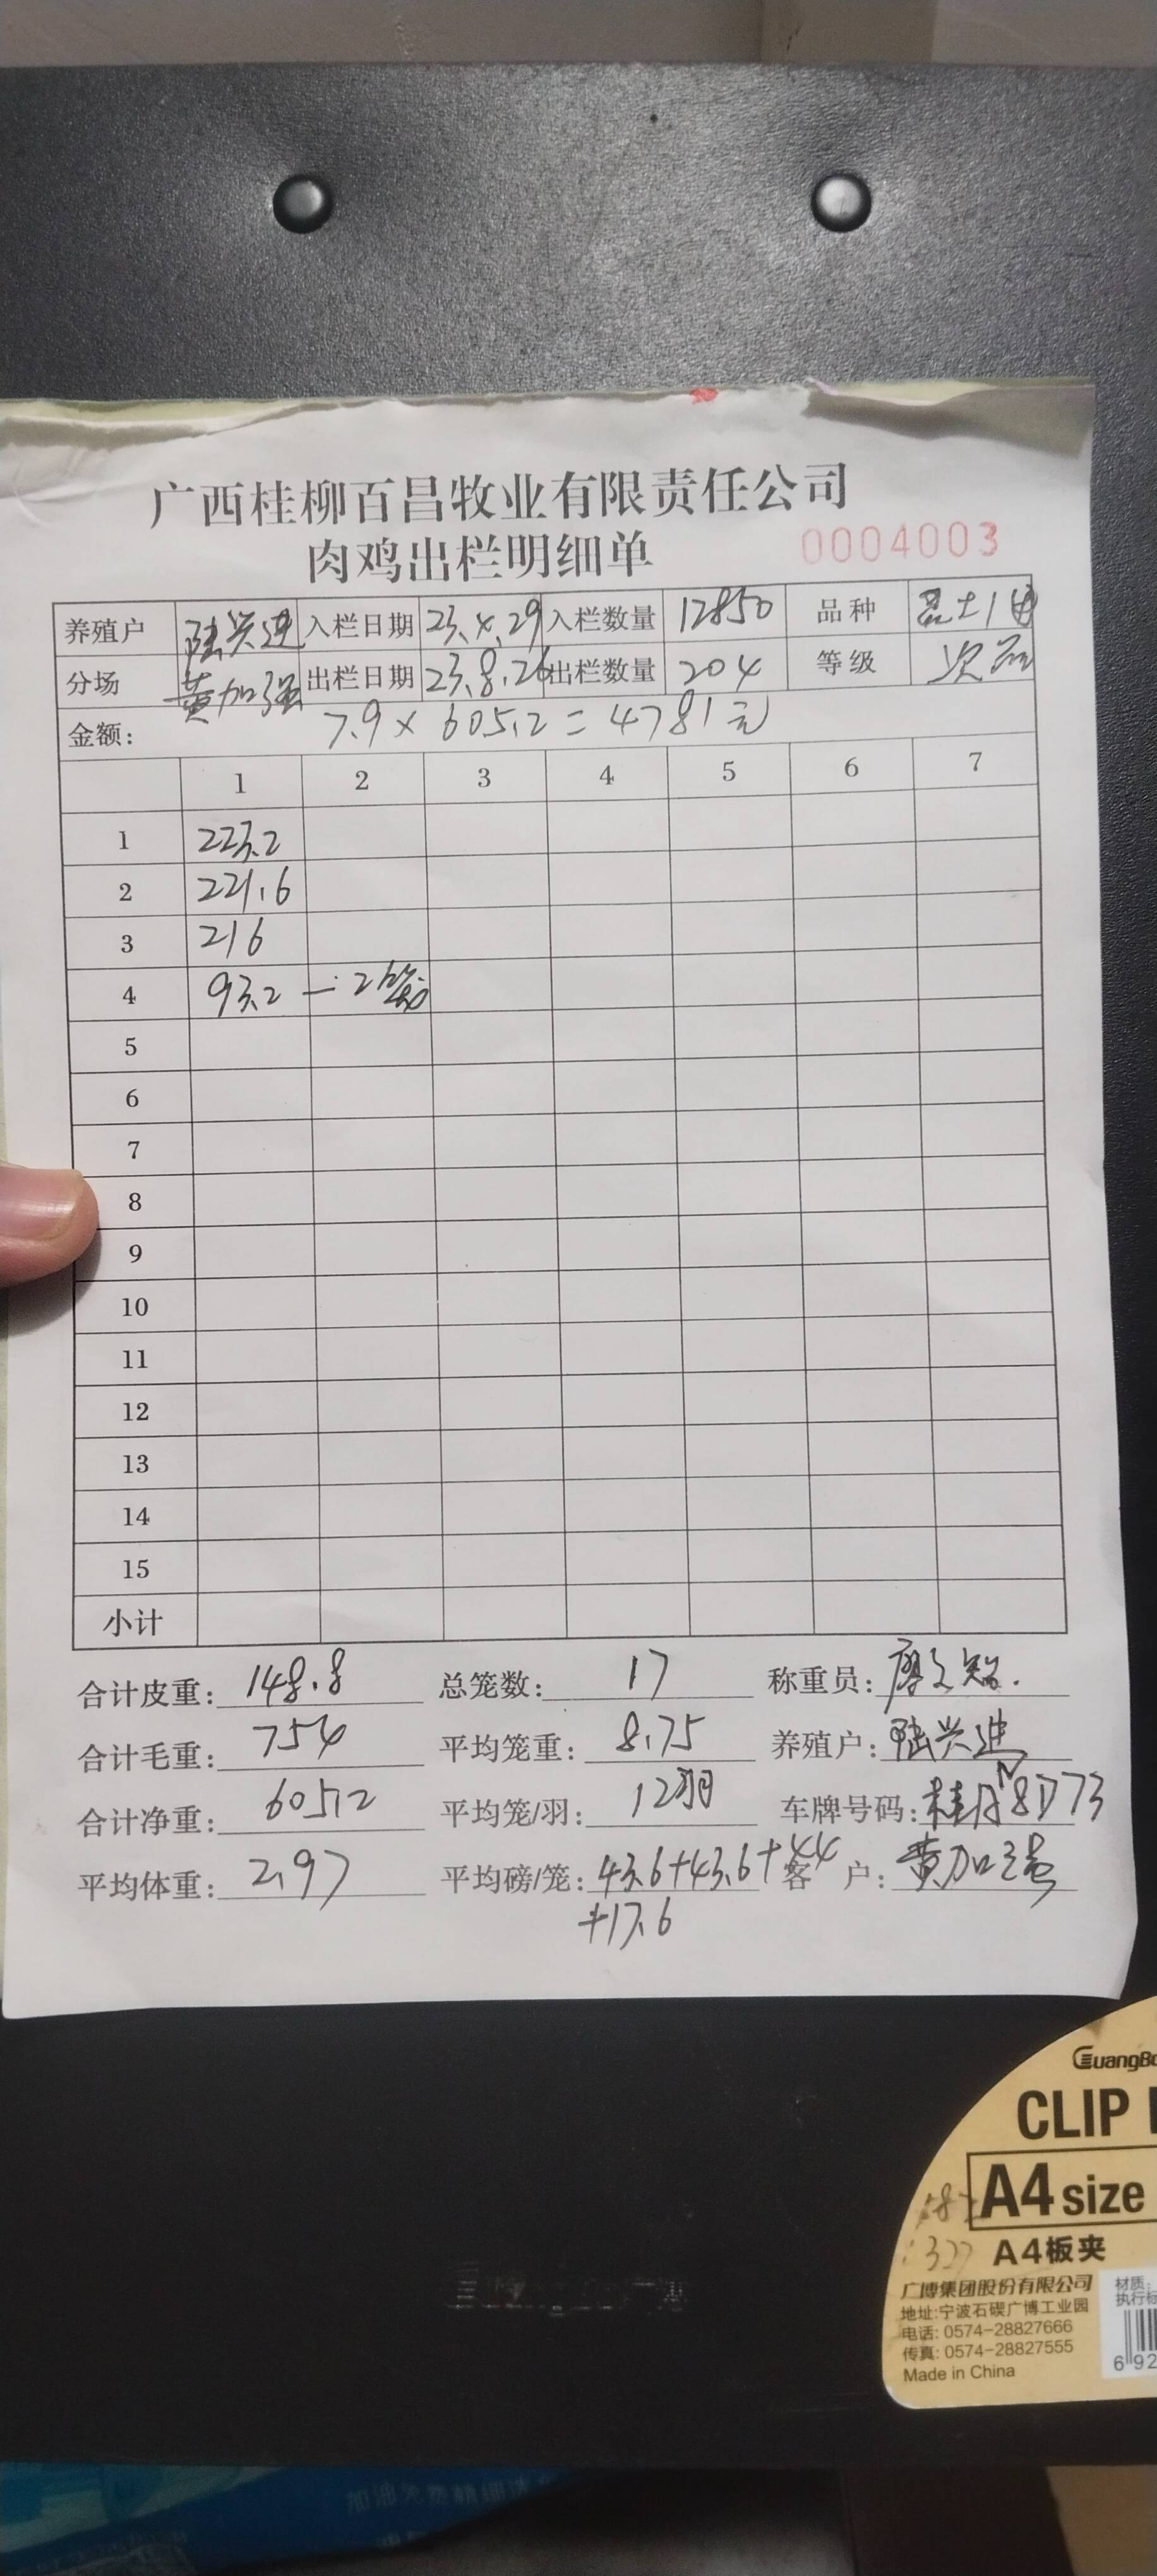 广西桂柳百昌牧业有限责任公司
肉鸡出栏明细单 0004003
养殖户 陆兴进 入栏日期 23.4.29 入栏数量 12850 品种
分场 黄加强 出栏日期 23.8.26 出栏数量 204 等级 次品
金额: 7.9×605.2=4781元
1 2 3 4 5 6 7
1 223.2
2 221.6
3 216
4 93.2
5
6
7
8
9
10
11
12
13
14
15
小计
合计皮重: 148.8 总笼数: 17 称重员:
合计毛重: 754 平均笼重: 8.75 养殖户: 陆兴进
合计净重: 605.2 平均笼/羽: 12羽 车牌号码:
平均体重: 2.97 平均磅/笼: 43.6+43.6+44 客 户: 黄加强
+17.6
GuangBo
CLIP
A4 size
A4板夹
广博集团股份有限公司
地址:宁波石碶广博工业园
电话: 0574-28827666
传真: 0574-28827555
Made in China
材质:
执行标
6 92